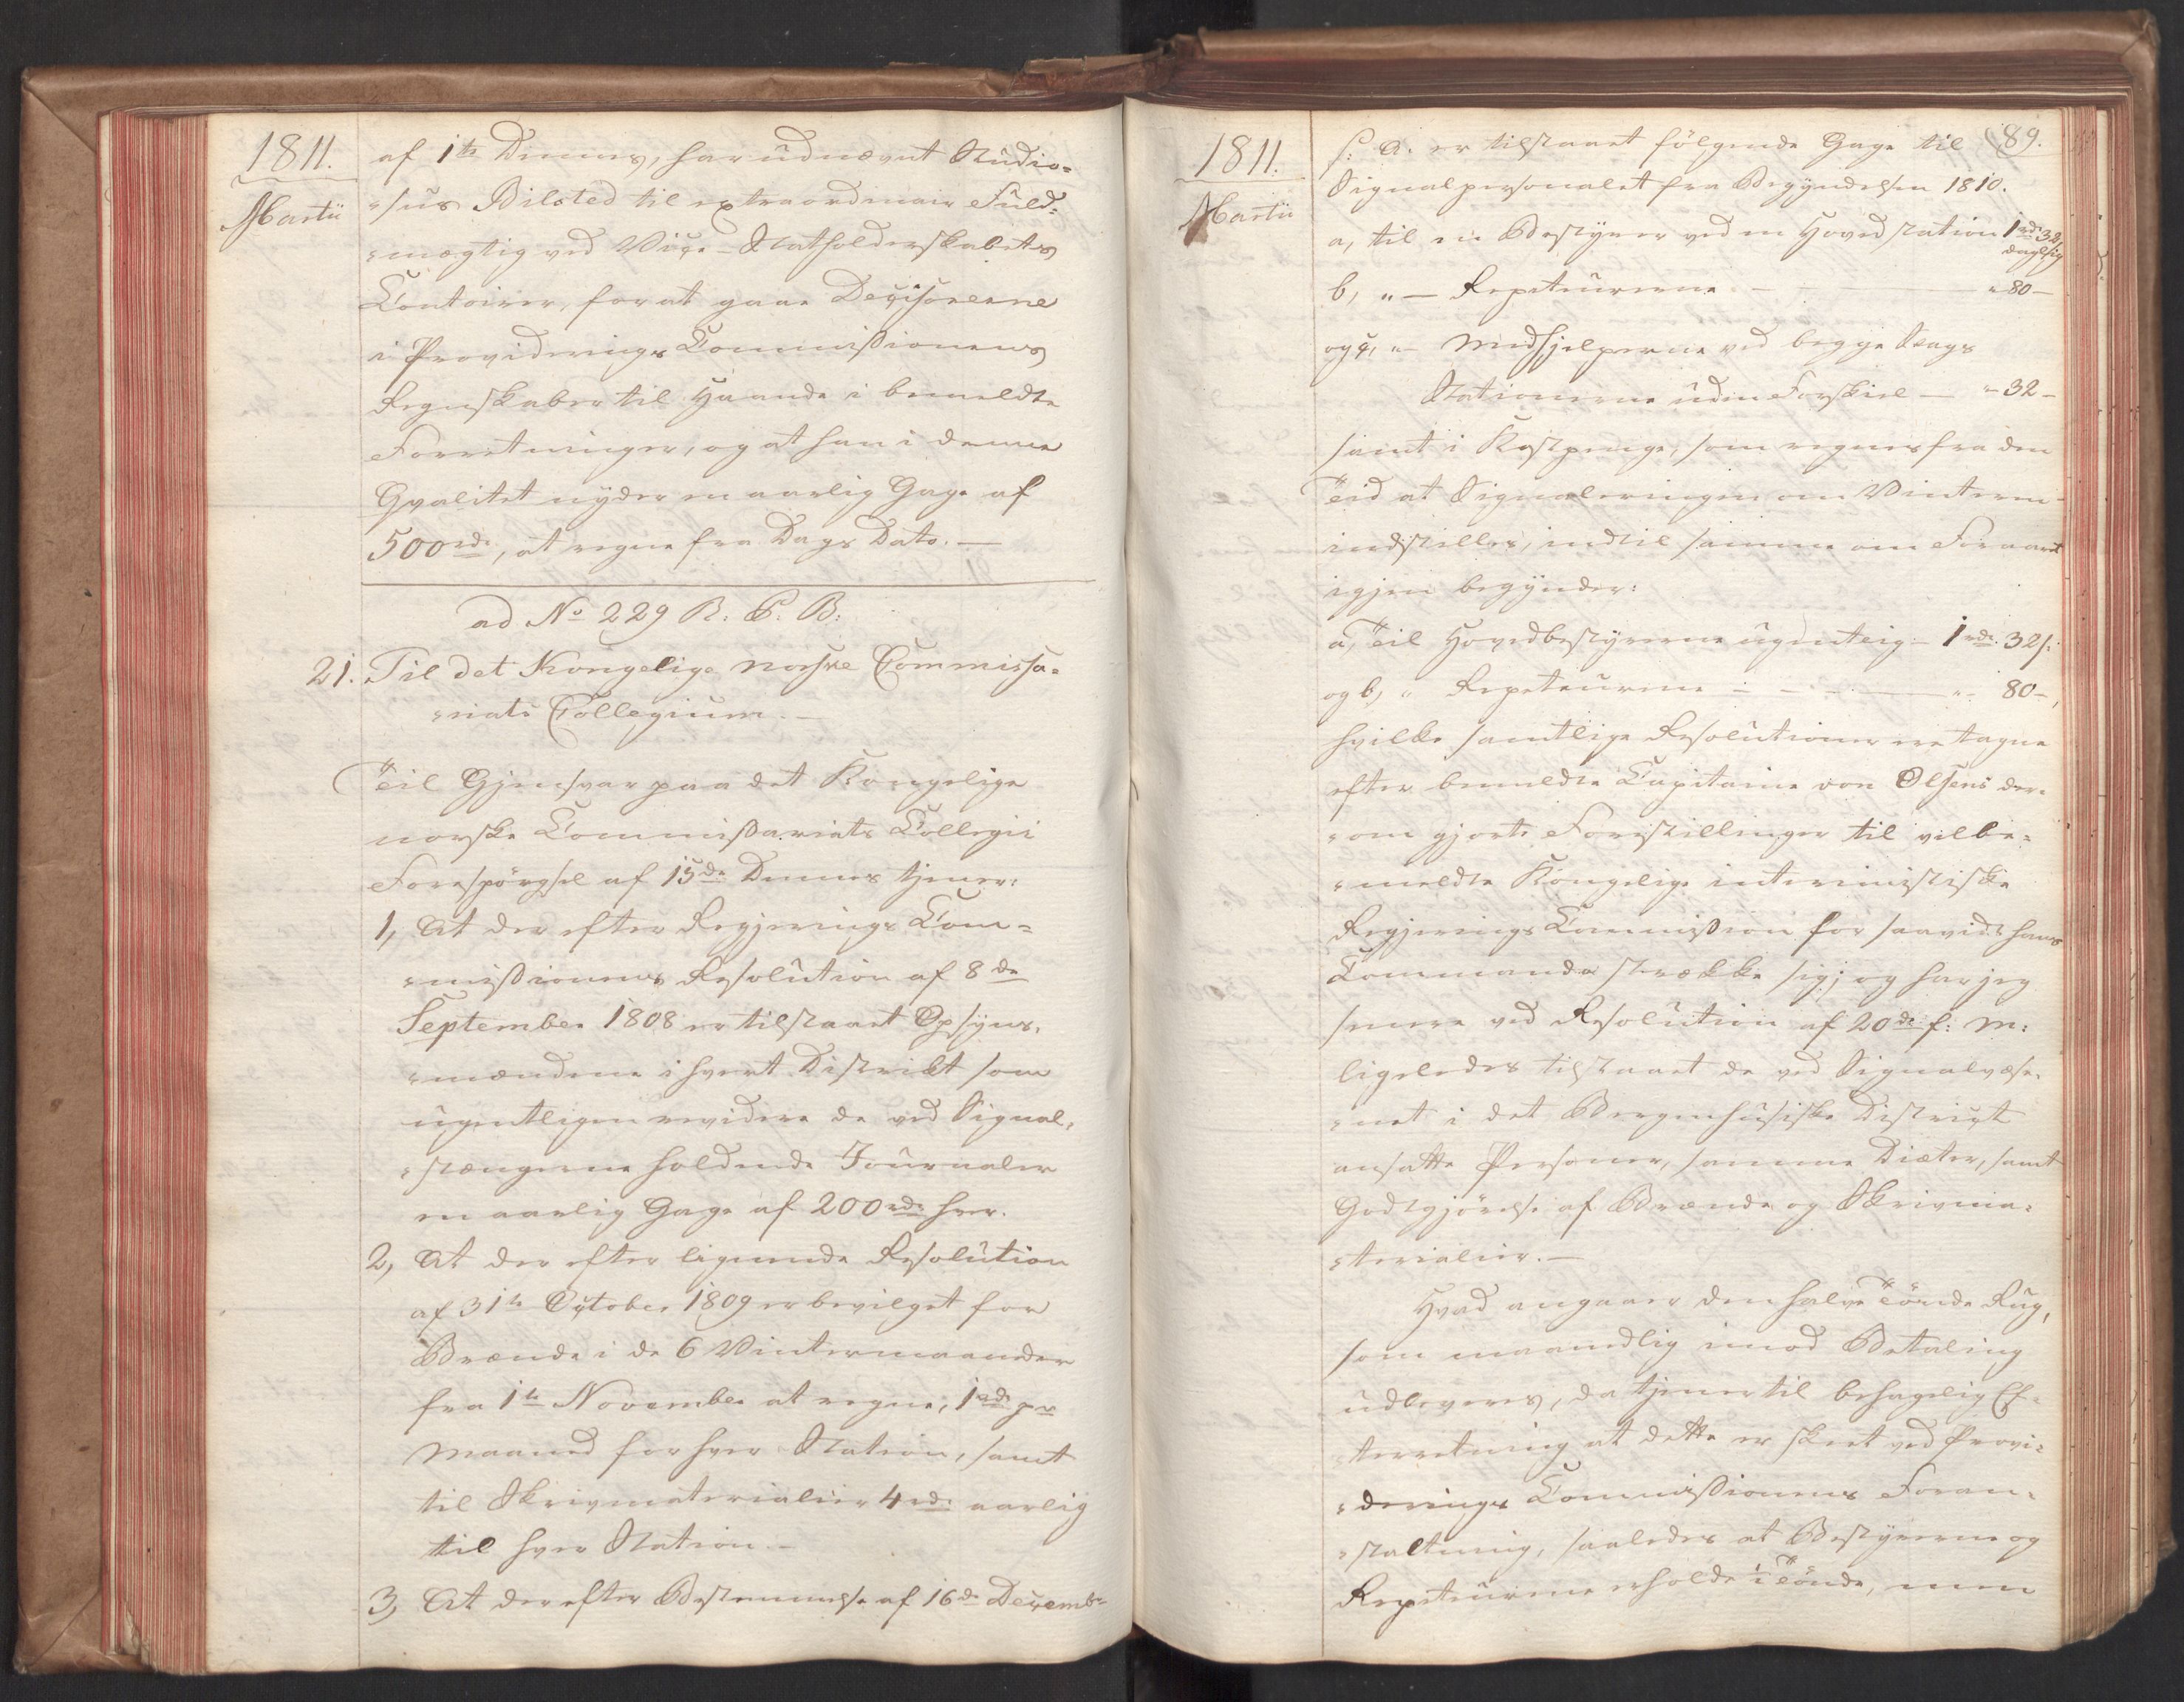 1811.
Martii
af 1te Dennes, har udnævnt Studio-
-sus Bilsted til extraordinair Fuld-
-mægtig ved Vice-Statholderskabets
Contoirer, for at gaae Decisorerne
i Provideringscommissionens
Regnskaber til Haande i bemeldte
Forretninger, og at han i denne
Qvalitet nyder en aarlig Gage af
500 rd., at regne fra Dags Dato. —
ad No 229 R. C. B:
21. Til det Kongelige norske Commissa-
-riats Collegium. —
Til Gjensvar paa det Kongelige
norske Commissariats Collegii
Forespörgsel af 15de Dennes tjener:
1, At der efter Regjerings Com-
-missionens Resolution af 8de
September 1808 er tilstaaet Opsyns-
-mændene i hvert Distrikt som
ugentligen revidere de ved Signal-
-stængerne holdende Journaler
en aarlig Gage af 200 rd. hver.
2, At der efter lignende Resolution
af 31te October 1809 er bevilget for
Brænde i de 6 Vintermaaneder
fra 1te November at regne, 1 rd. pr
Maaned for hver Station, samt
til Skrivmaterialier 4 rd. aarlig
til hver Station. —
3, At der efter Bestemmelse af 16de Decembr
1811.
Martii
89.
f: A: er tilstaaet fölgende Gage til
Signalpersonalet fra Begyndelsen 1810.
a, til en Bestyrer ved en Hovedstation 1 rd. 32 s.
daglig
b, " — Repeteurerne — — — " 80 —
og c, " — Medhjelperne ved begge Slags
Stationerne uden Forskiel — " 32 —
samt i Kostpenge, som regnes fra den
Tid at Signaleringen om Vinteren
indstilles, indtil samme om Foraaret
igjen begynder:
a, Til Hovedbestyrerne ugentlig — 1 rd. 32 s.
og b, " Repeteurerne — — — " 80 —,
hvilke samtlige Resolutioner ere tagne
efter bemeldte Capitaine von Olsens der-
-om gjorte Forestillinger til velbe-
-meldte Kongelige interimistiske
Regjerings Commission for saavidt hans
Commando strække sig; og har jeg
senere ved Resolution af 20de f: M:
ligeledes tilstaaet de ved Signalvæse-
-net i det Bergenhusiske District
ansatte Personer, samme Diæter, samt
Godtgjörelse af Brænde og Skrivma-
-terialier. —
Hvad angaaer den halve Tönde Rug,
som maanedlig imod Betaling
udleveres, da tjener til behagelig Ef-
-terretning at dette er skeet ved Provi-
-derings Commissionens Foran-
-staltning, saaledes at Bestyrerne og
Repeteurerne erholde 1 Tönde, men